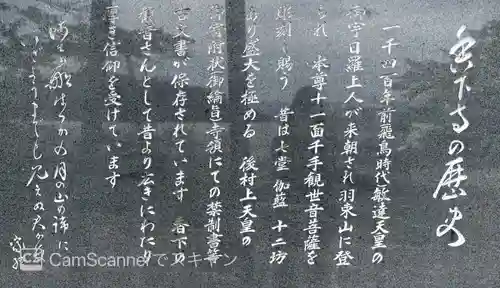 香下寺の歴史
一千四百年前飛鳥時代敏達天皇の
御宇日羅上人が来朝され羽束山に登
られ 本尊十一面千手観世音菩薩を
彫刻し賜う 昔は七堂伽藍 十二坊
あり盛大を極める 後村上天皇の
御宿所状御綸旨寺領にての禁制書等
古文書が保存されています 香下の
観音さんとして昔より各きにわたり
厚き信仰を受けています
月の山の端に
CamScannerでスキャン